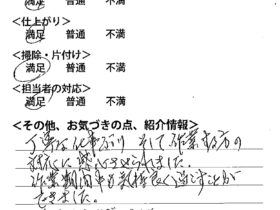 満足　普通　不満
<仕上がり>
満足　普通　不満
<掃除・片付け>
満足　普通　不満
<担当者の対応>
満足　普通　不満
<その他、お気づきの点、紹介情報>
丁寧な仕事ぶり そして作業する方の
に感心させられました。
作業期間中も気持良く過ごすことが
できました。